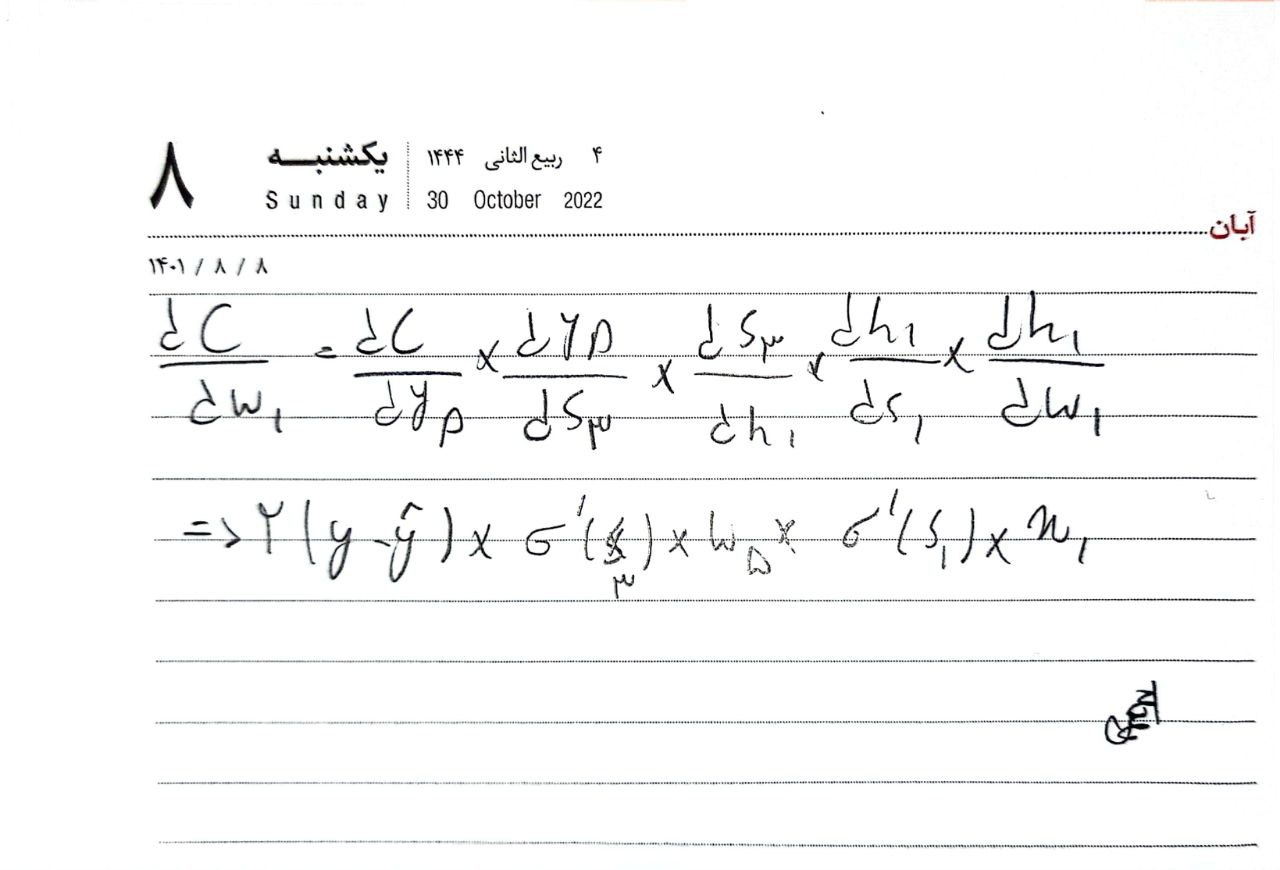 ۸
یکشنبه
Sunday
۴ ربیع الثانی ۱۴۴۴
30 October 2022
آبان
۱۴۰۱ / ۸ / ۸
dC/dw₁ = dC/dyp × dyp/dS۳ × dS۳/dh₁ × dh₁/ds₁ × dh₁/dw₁
=> ۲(y - ŷ) × σ'(s۳) × w۵ × σ'(s₁) × x₁